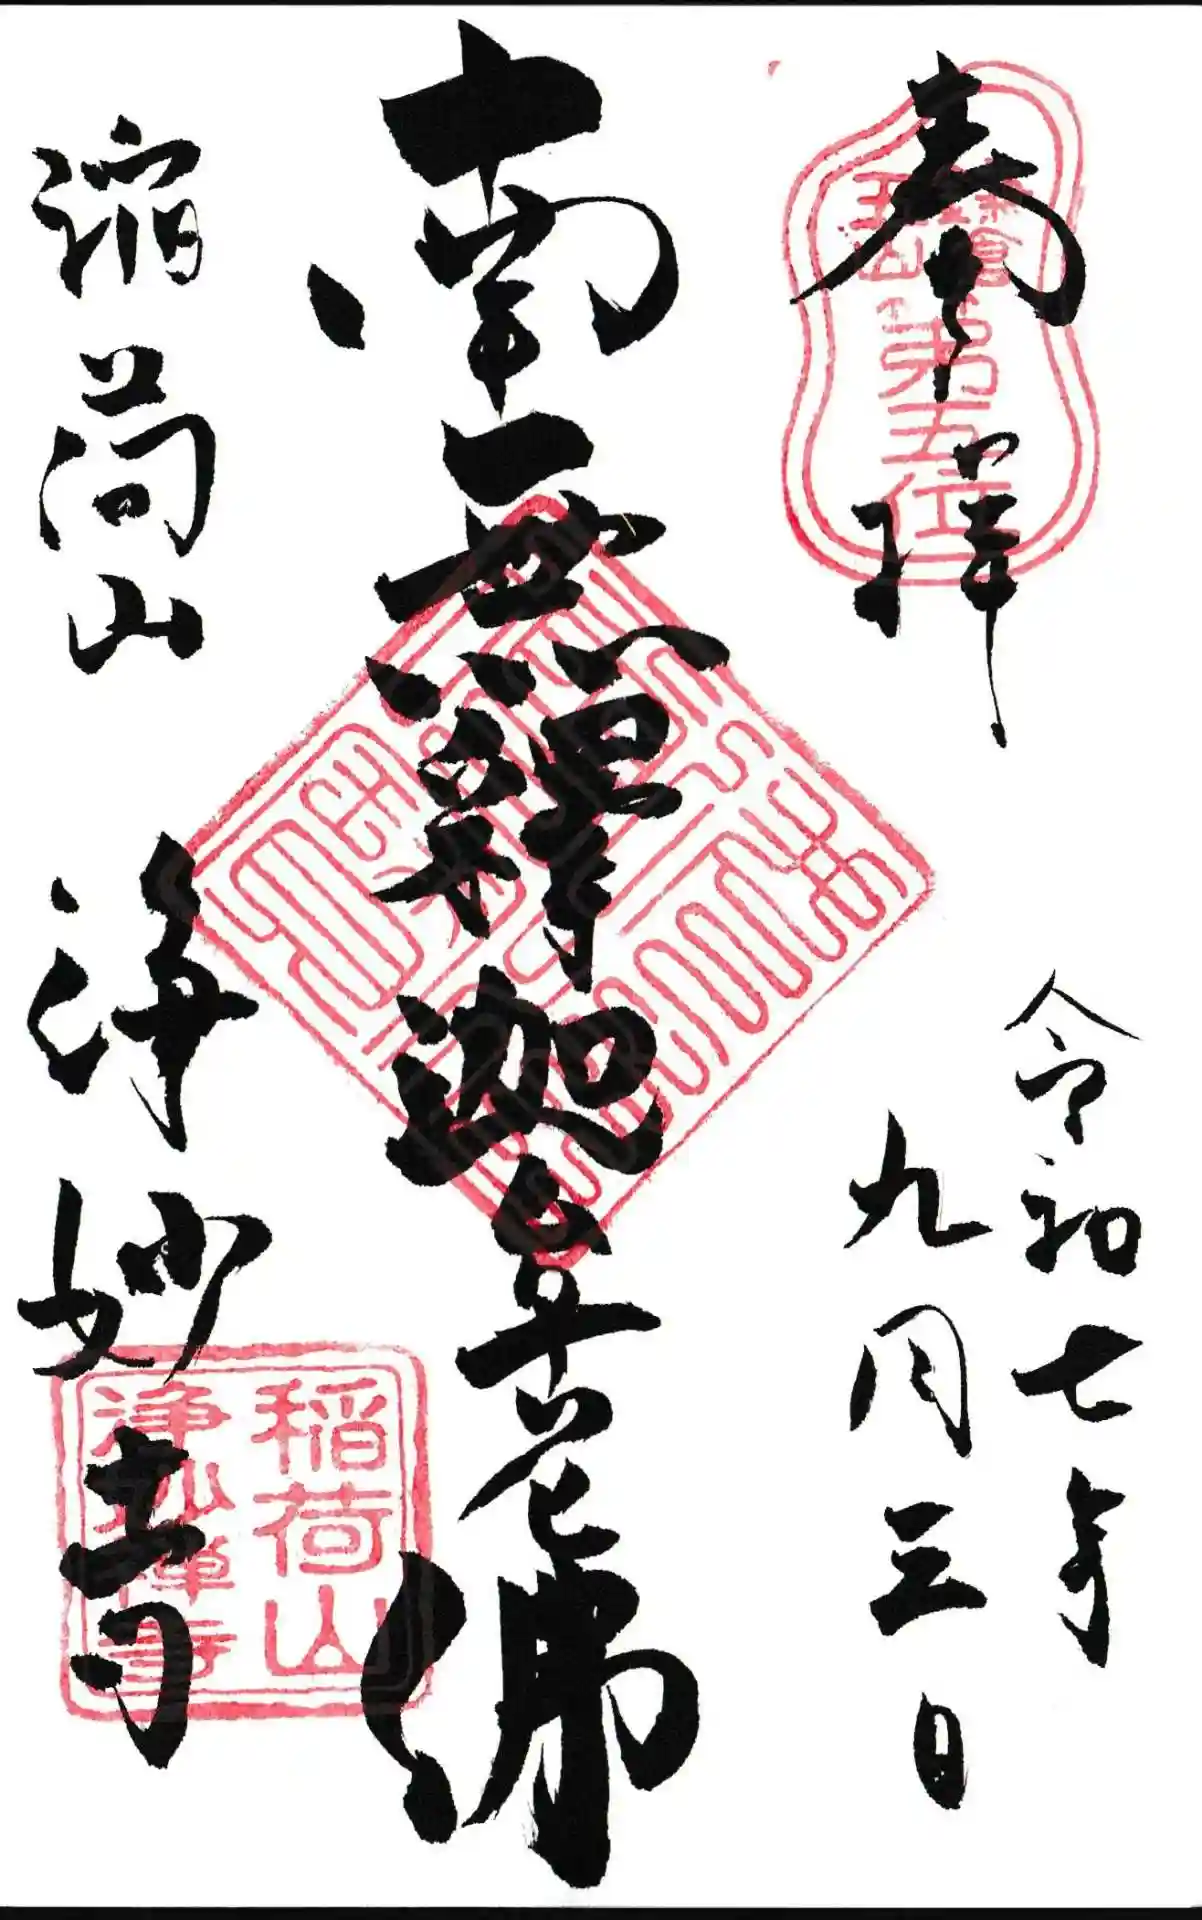 奉拝
鎌倉
五山
第五位
令和七年
九月三日
南無釋迦牟尼佛
稲荷山 浄妙寺
稲荷山
浄妙禅寺